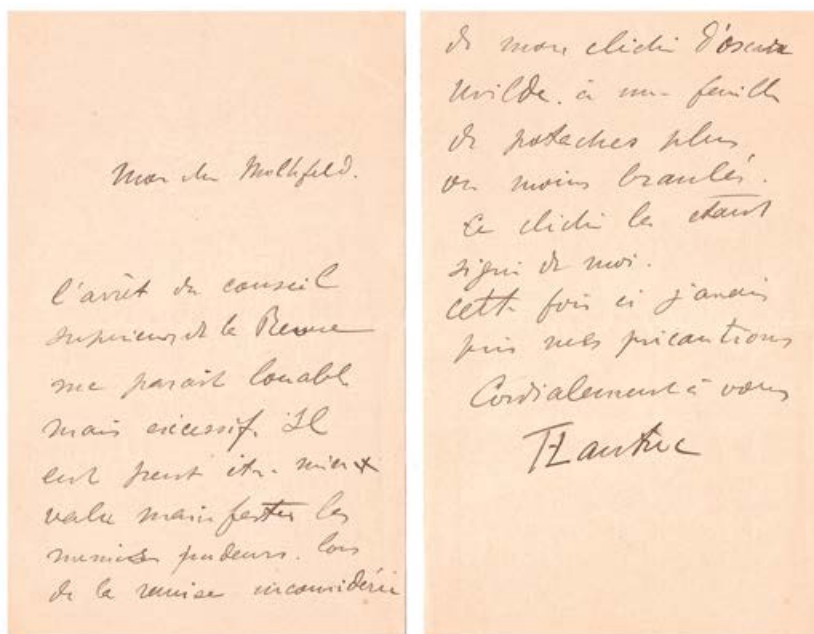 Mon cher Molhfeld.
l'arrêt du conseil
supérieur de la Revue
me parait louable
mais excessif. Il
eut peut etre mieux
valu manifester les
memes pudeurs. lors
de la remise inconsidérée
de mon cliché d'oscar
wilde. à une feuille
de potaches plus
ou moins branlés.
ce cliché là étant
signé de moi.
cette fois ci j'avais
pris mes précautions
Cordialement à vous
TLautrec